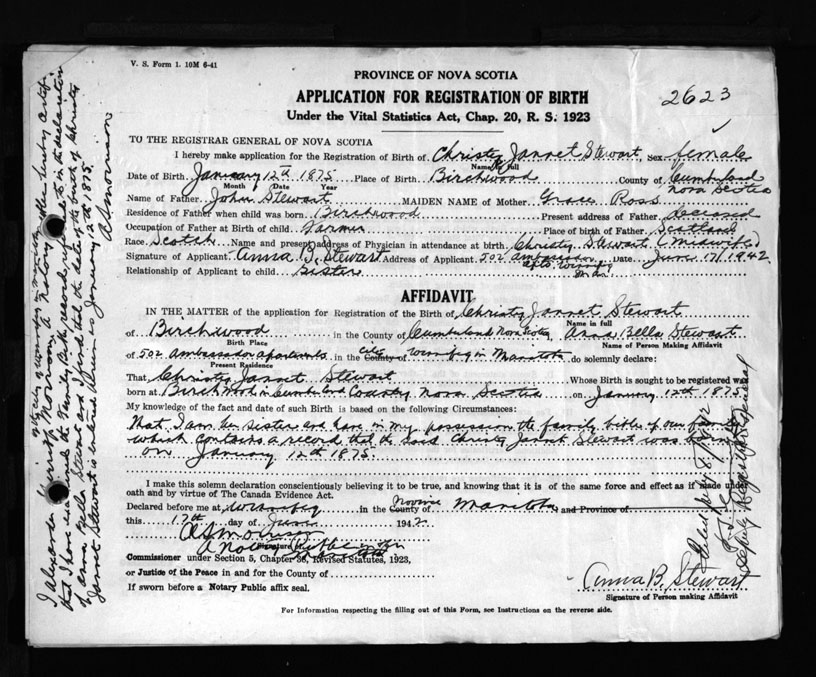 V. S. Form 1. 10M 6-41
PROVINCE OF NOVA SCOTIA
APPLICATION FOR REGISTRATION OF BIRTH
2623
Under the Vital Statistics Act, Chap. 20, R. S. 1923
TO THE REGISTRAR GENERAL OF NOVA SCOTIA
I hereby make application for the Registration of Birth of Christy Jannet Stewart, Sex female
Name in full
Date of Birth January 12th 1875 Place of Birth Birchwood County of Cumberland
Month Date Year
Nova Scotia
Name of Father John Stewart MAIDEN NAME of Mother Grace Ross
Residence of Father when child was born Birchwood Present address of Father Deceased
Occupation of Father at Birth of child Farmer Place of birth of Father Scotland
Race Scotch Name and present address of Physician in attendance at birth Christy Stewart (Midwife)
Signature of Applicant Anna B. Stewart Address of Applicant 502 Ambassador Date June 17/1942
Apts. Winnipeg
Man.
Relationship of Applicant to child Sister
AFFIDAVIT
IN THE MATTER of the application for Registration of the Birth of Christy Jannet Stewart
Name in full
of Birchwood in the County of Cumberland Nova Scotia, Anna Bella Stewart
Birth Place Name of Person Making Affidavit
of 502 Ambassador Apartments in the City County of Winnipeg in Manitoba do solemnly declare:
Present Residence
That Christy Jannet Stewart Whose Birth is sought to be registered was
born at Birchwood in Cumberland County Nova Scotia on January 12th 1875
My knowledge of the fact and date of such Birth is based on the following Circumstances:
That I am her sister and have in my possession the family bible of our family
which contains a record that the said Christy Jannet Stewart was born
on January 12th 1875.
I make this solemn declaration conscientiously believing it to be true, and knowing that it is of the same force and effect as if made under
oath and by virtue of The Canada Evidence Act.
Declared before me at Winnipeg in the County of Province Manitoba and Province of
this 17th day of June 1942
A S Morrison
A Notary Public in &
Signature
Commissioner under Section 5, Chapter 38, Revised Statutes, 1923,
or Justice of the Peace in and for the County of
If sworn before a Notary Public affix seal.
Anna B. Stewart
Signature of Person making Affidavit
For Information respecting the filling out of this Form, see Instructions on the reverse side.
of the city of Winnipeg in Manitoba
I Alexander Morrison a Notary Public hereby certify
that I have examined the Family Bible record referred to in the declaration
of Anna Bella Stewart and I find that the date of the birth of Christy
Jannet Stewart is entered therein as January 12th 1875.
A S Morrison
Filed
Deputy Registrar General